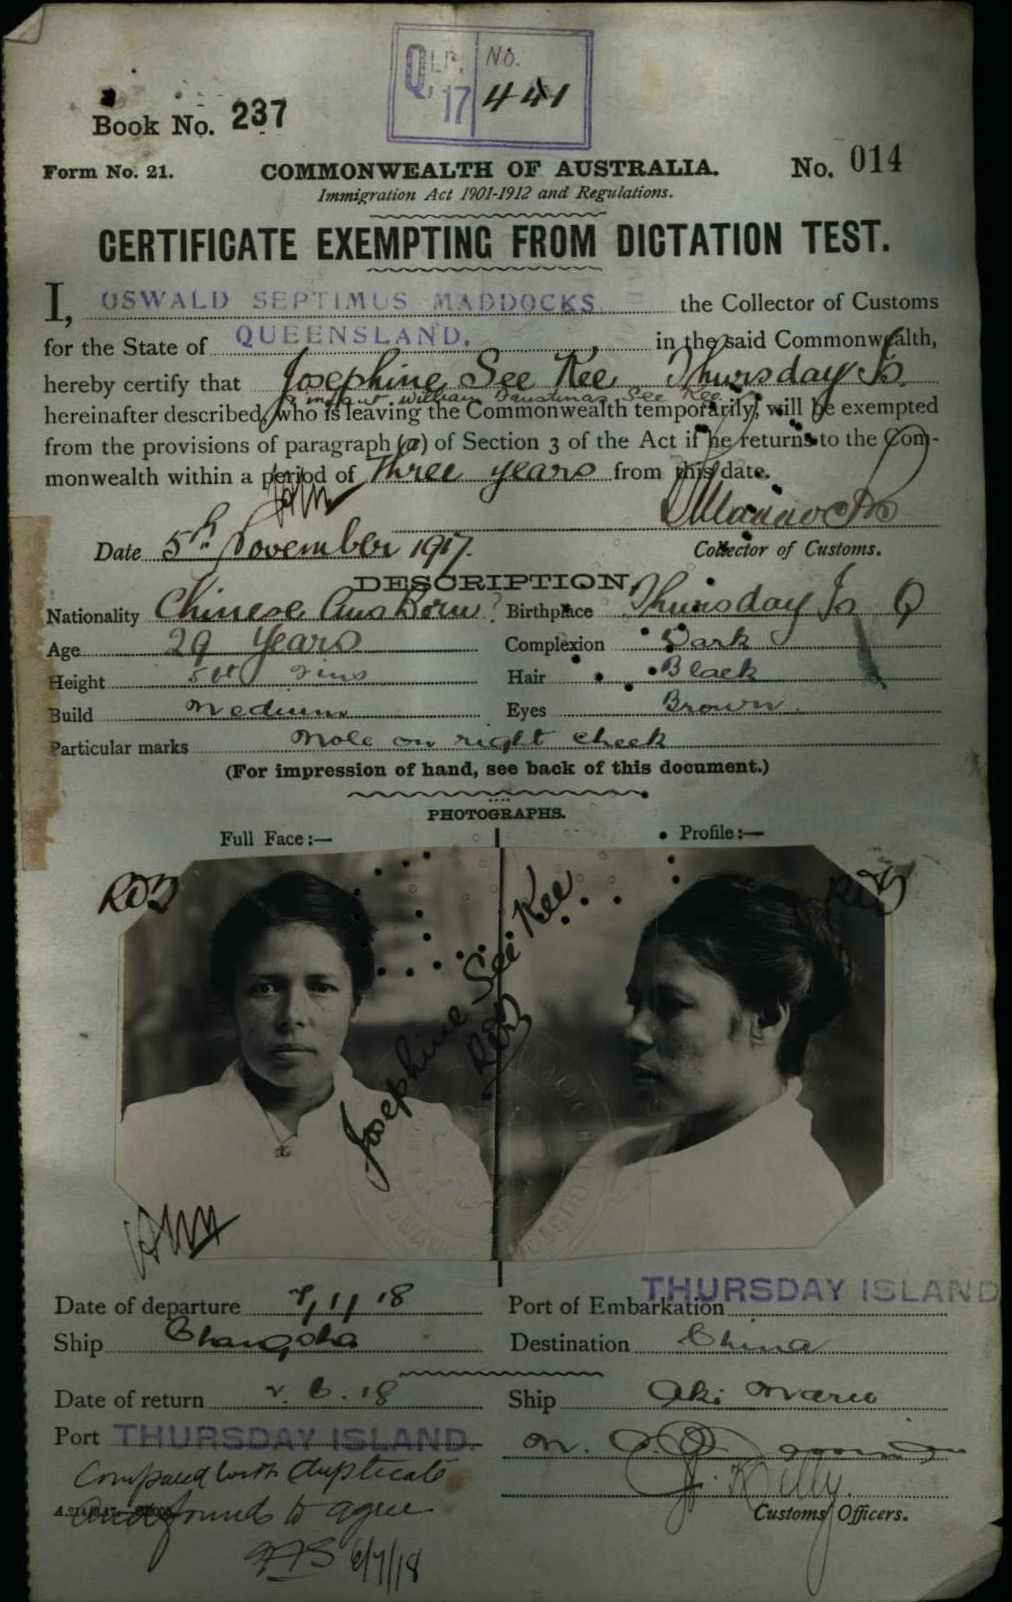 QLD. 17 No. 441
Book No. 237
Form No. 21. COMMONWEALTH OF AUSTRALIA. No. 014
Immigration Act 1901-1912 and Regulations.
CERTIFICATE EXEMPTING FROM DICTATION TEST.
I, OSWALD SEPTIMUS MADDOCKS the Collector of Customs
for the State of QUEENSLAND. in the said Commonwealth,
hereby certify that Josephine See Kee Thursday Is.
& infant William Faustinas See Kee
hereinafter described, who is leaving the Commonwealth temporarily, will be exempted
from the provisions of paragraph (a) of Section 3 of the Act if he returns to the Com-
monwealth within a period of Three years from this date.
Date 5th November 1917. Collector of Customs.
DESCRIPTION.
Nationality Chinese Aus Born Birthplace Thursday Is Q
Age 29 Years Complexion Dark
Height 5 ft ins Hair Black
Build Medium Eyes Brown
Particular marks Mole on right cheek
(For impression of hand, see back of this document.)
PHOTOGRAPHS.
Full Face:— Profile:—
Josephine See Kee
Date of departure 7/1/18 Port of Embarkation THURSDAY ISLAND
Ship Changsha Destination China
Date of return 2.6.18 Ship Aki Maru
Port THURSDAY ISLAND.
Compared with duplicate
and found to agree
Customs Officers.
6/7/18